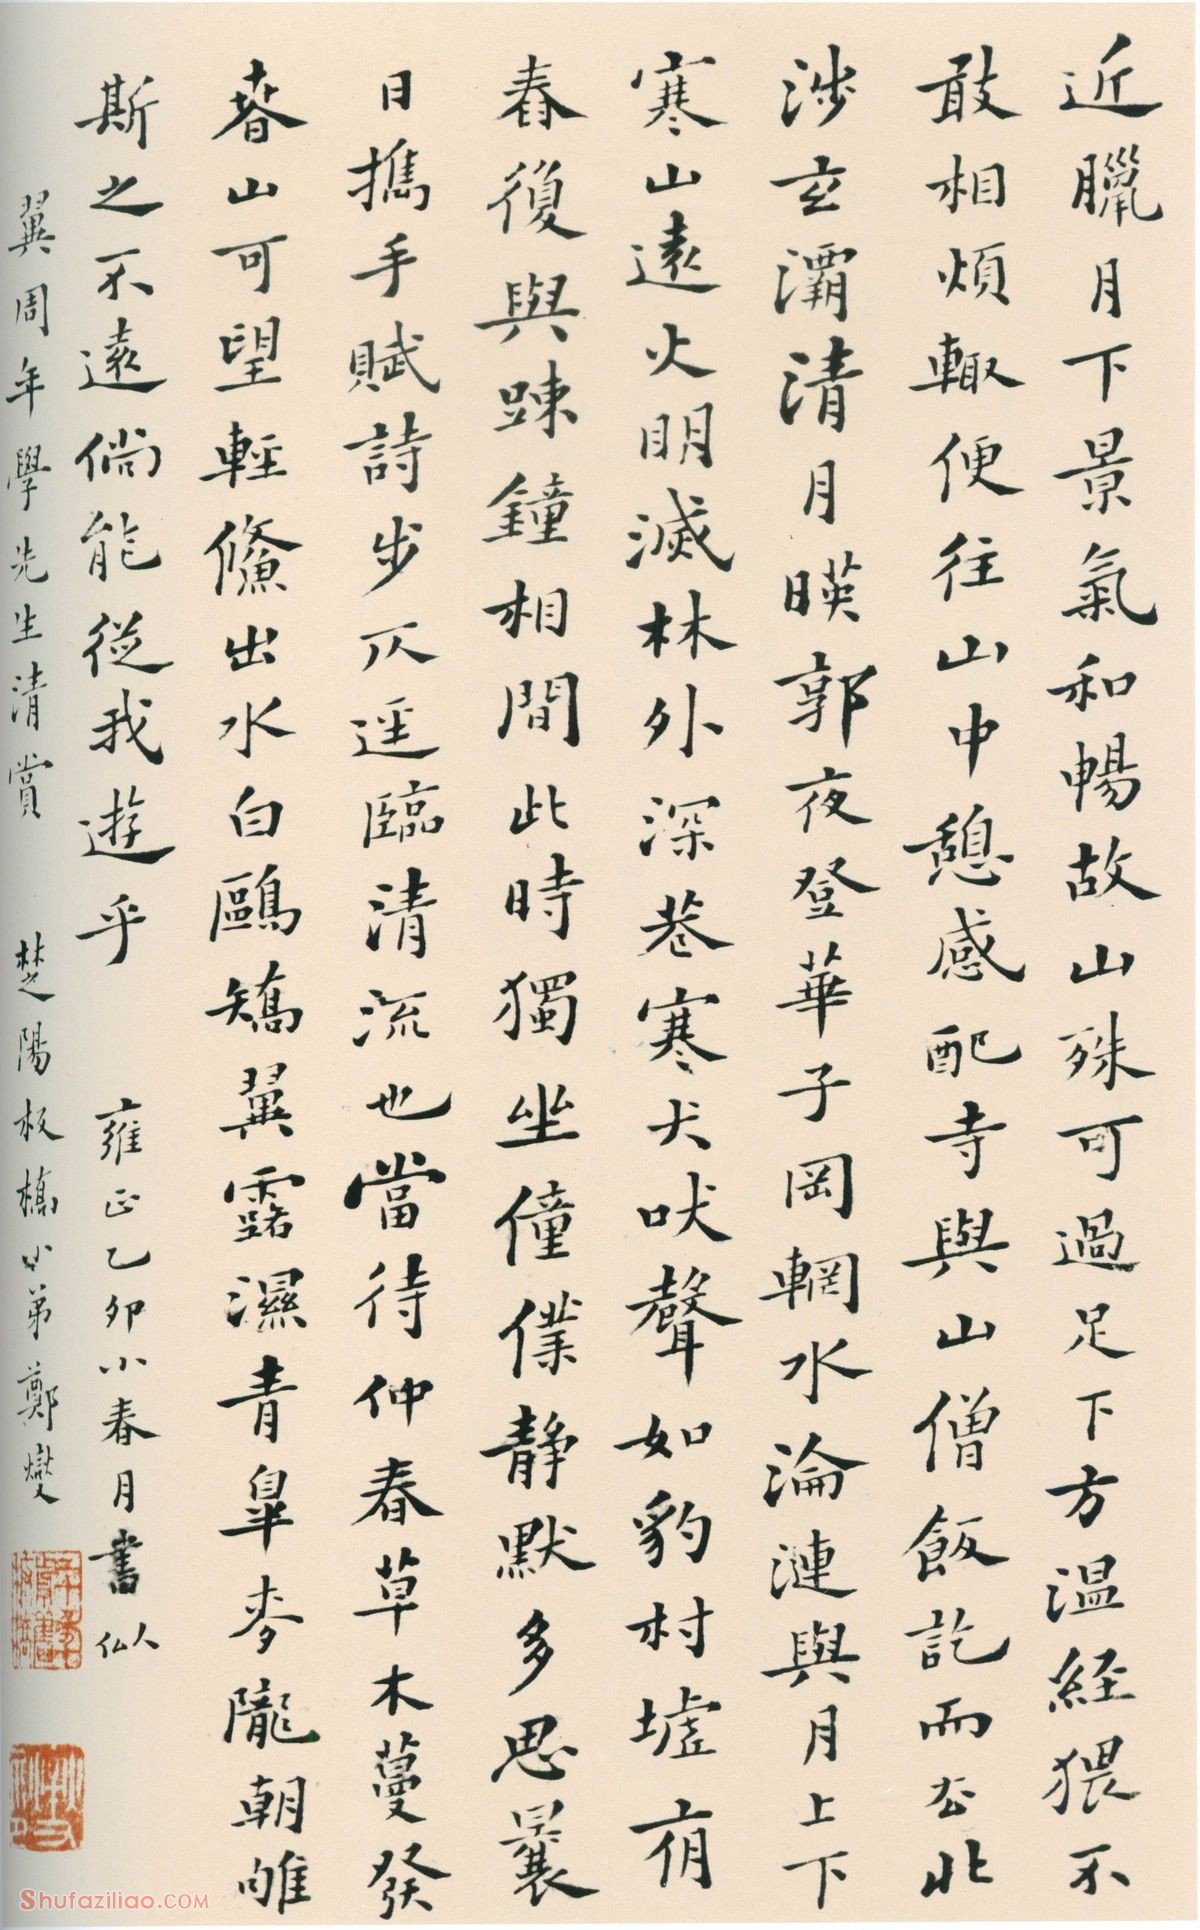 近臘月下景氣和暢故山殊可過足下方温経猥不
敢相煩輙便往山中憩感配寺與山僧飯訖而去北
涉玄灞清月暎郭夜登華子岡輞水淪漣與月上下
寒山遠火明滅林外深巷寒犬吠聲如豹村墟夜
舂復與踈鐘相間此時獨坐僮僕静默多思曩
日攜手賦詩步仄逕臨清流也當待仲春草木蔓發
春山可望輕鯈出水白鷗矯翼露濕青皐麥隴朝雊
斯之不遠倘能從我遊乎 雍正乙卯小春月書似
翼周年學先生清賞 楚陽板橋小弟鄭燮
Shufaziliao.COM